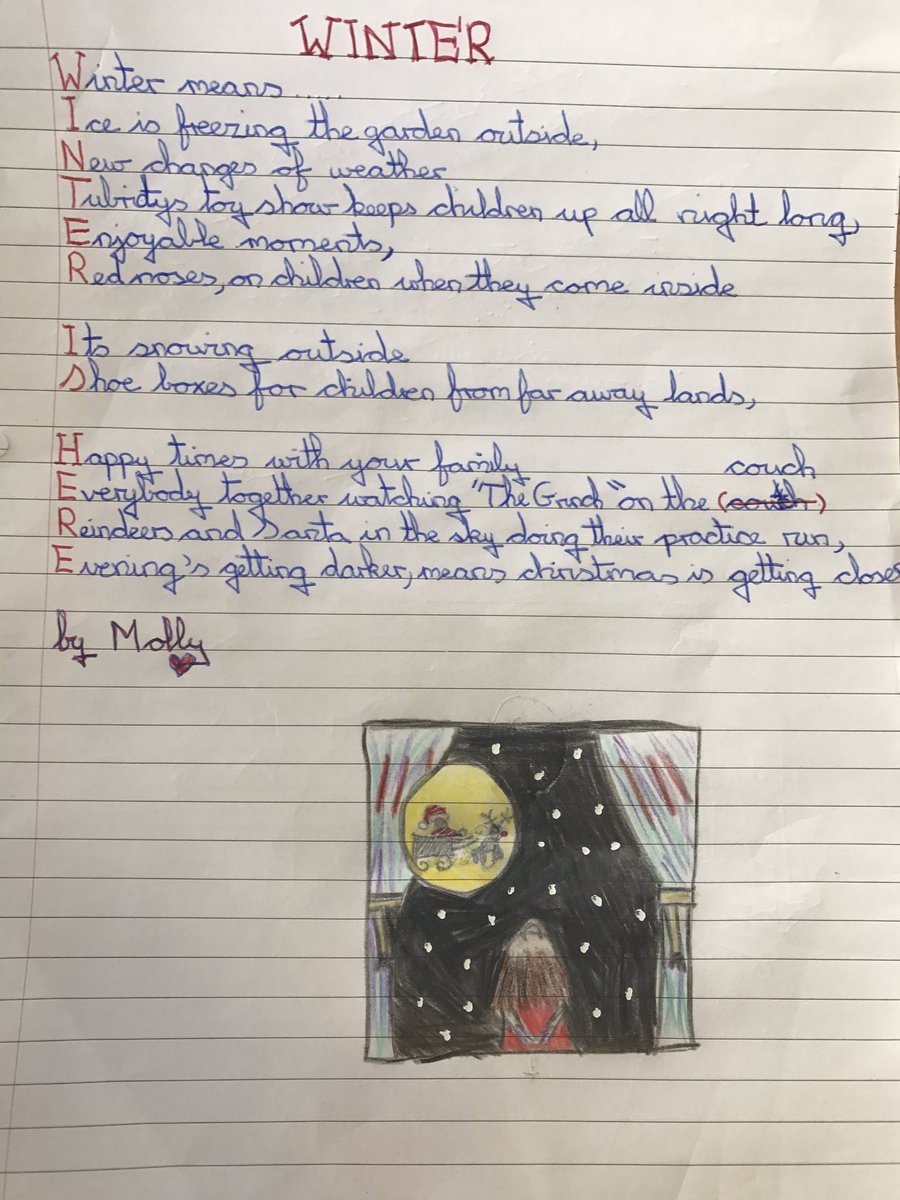 WINTER
Winter means......
Ice is freezing the garden outside,
New changes of weather
Tubridys toy show keeps children up all night long,
Enjoyable moments,
Red noses, on children when they come inside
Its snowing outside
Shoe boxes for children from far away lands,
Happy times with your family
couch
Everybody together watching "The Grinch" on the
Reindeers and Santa in the sky doing their practice run,
Evening's getting darker, means christmas is getting closer
by Molly